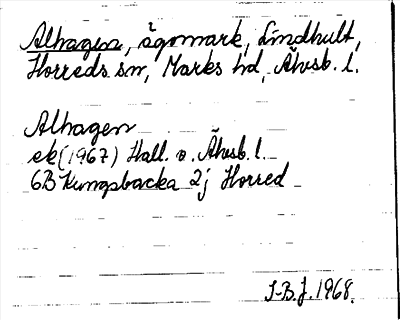 Alhagen, ägomark, Lindhult,
Horreds sn, Marks hd, Älvsb. l.
Alhagen
ek (1967) Hall. o. Älvsb. l.
6B Kungsbacka 2j Horred
I-B.J. 1968.